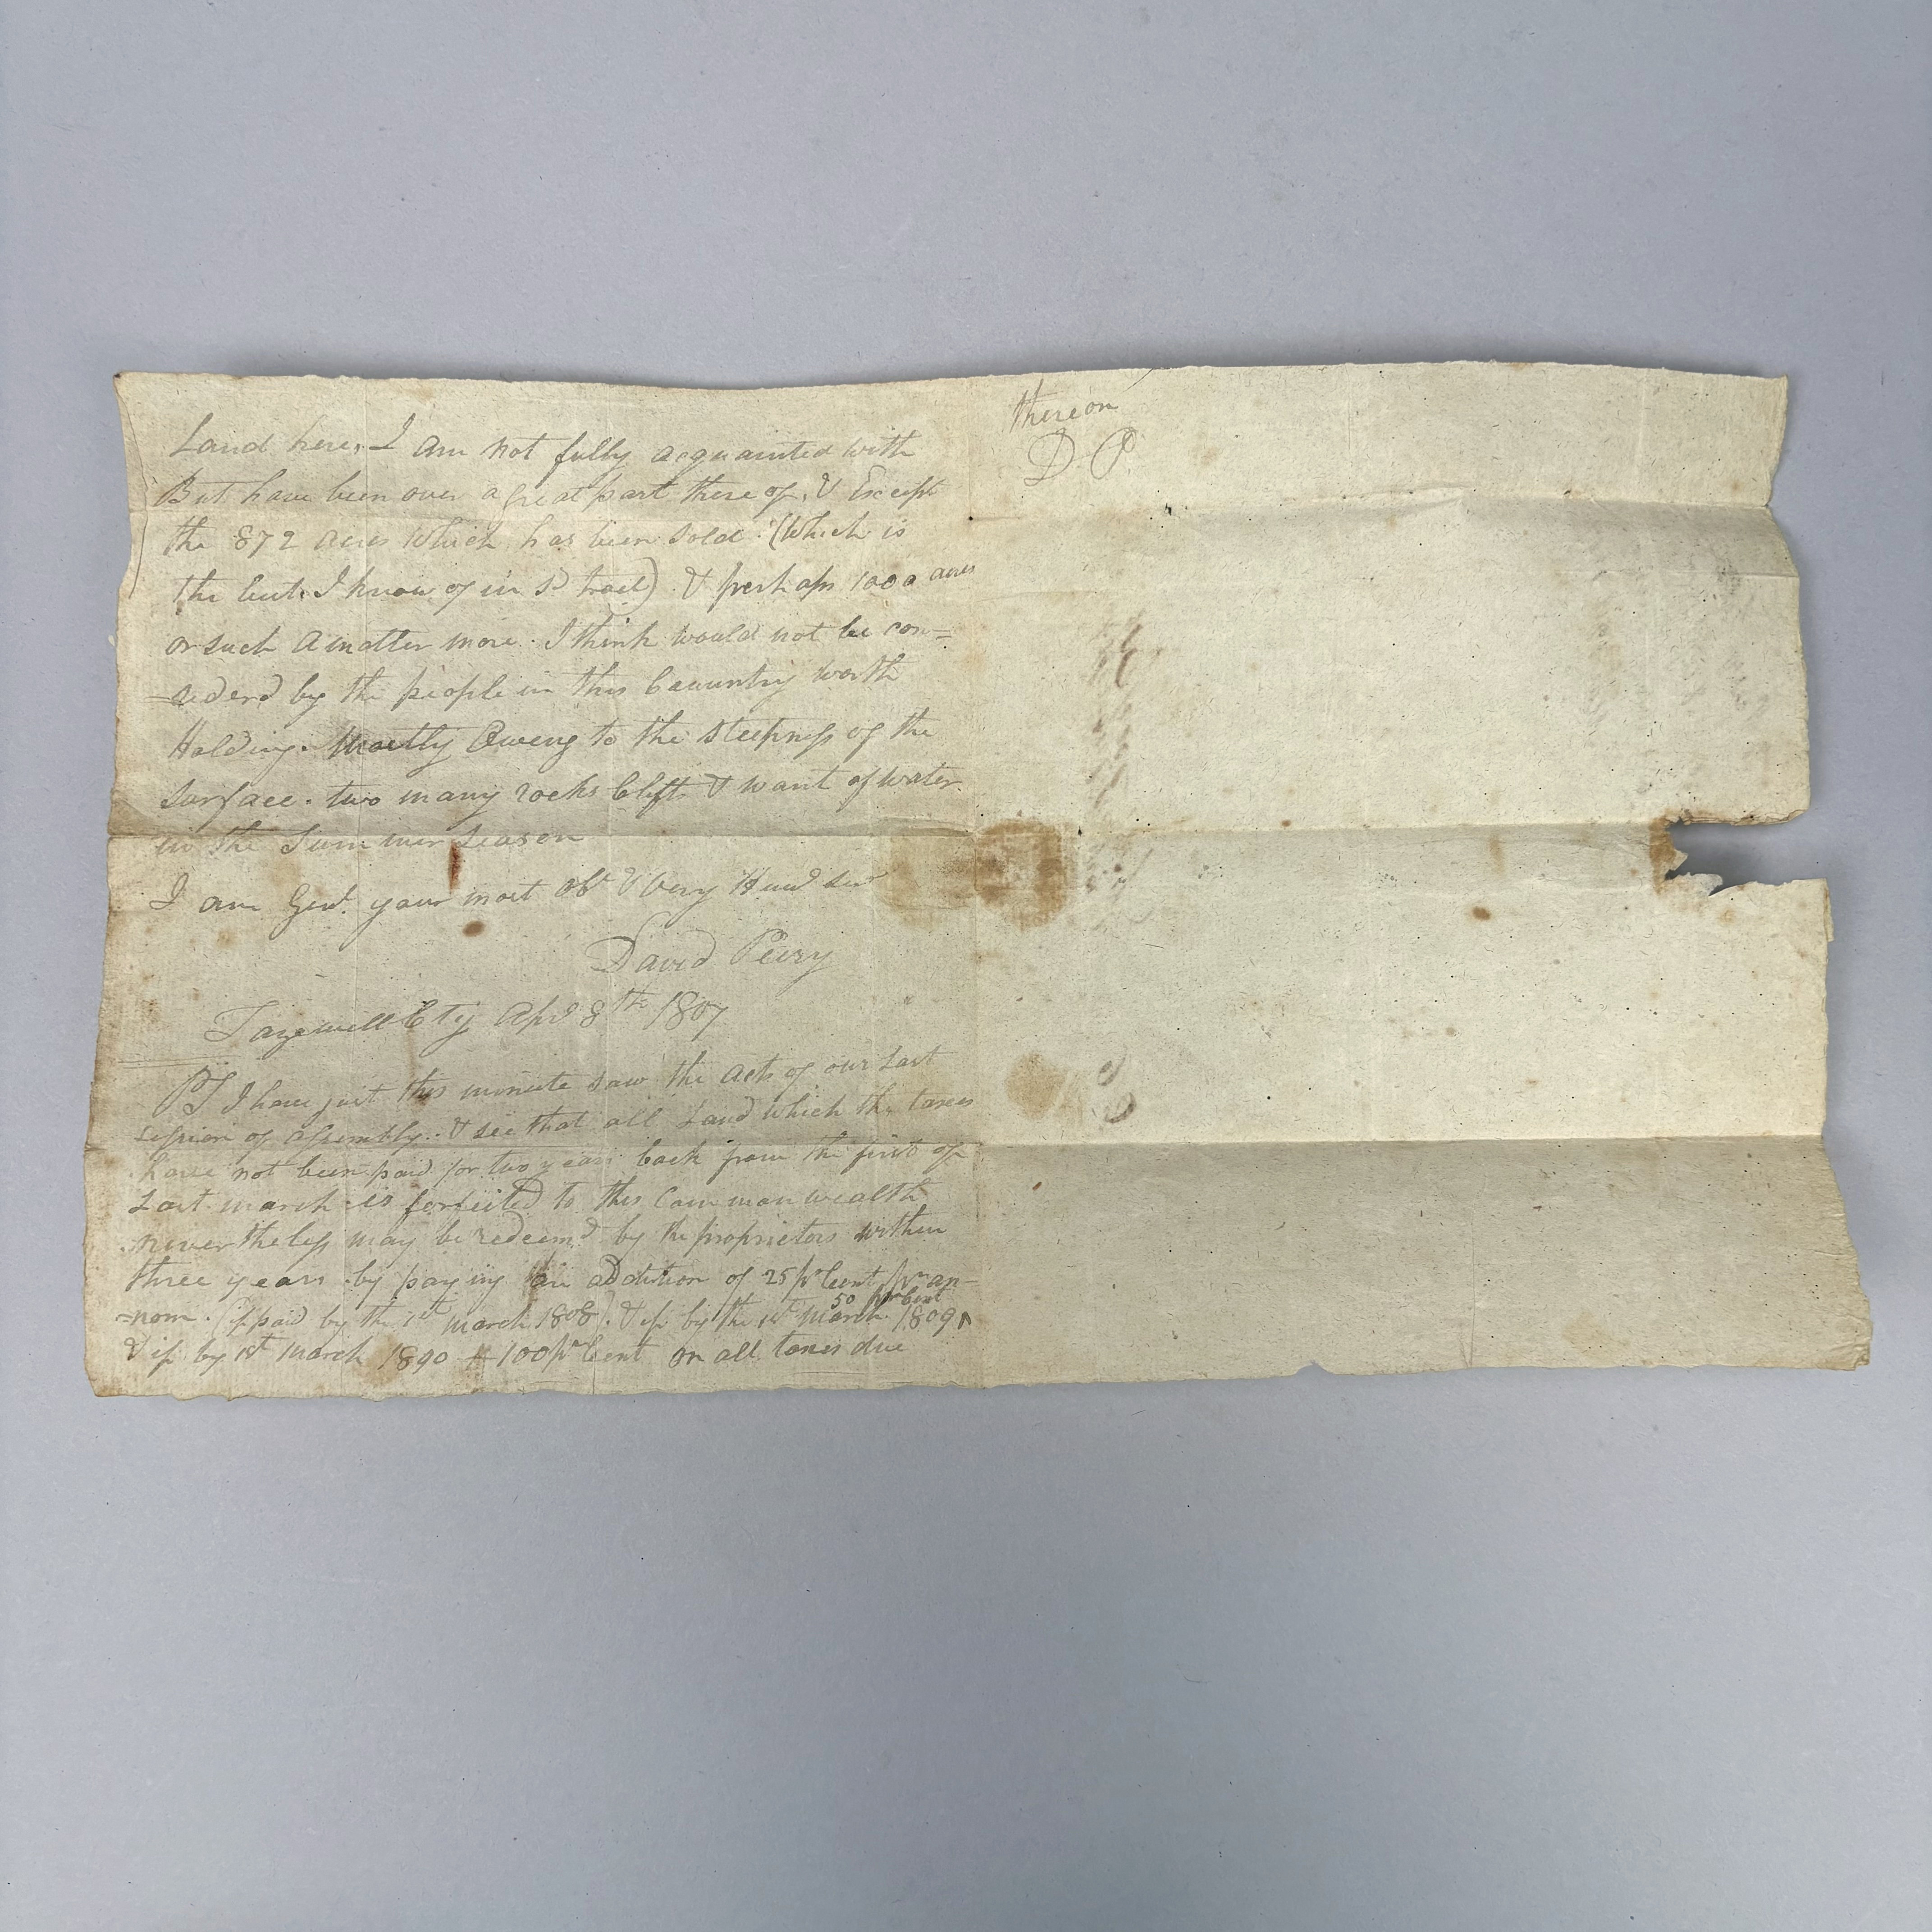 Land here, I am not fully acquainted with
But have been over a great part there of, & Except
the 872 acres which has been sold. (Which is
the best I know of in Sd tract) & perhaps 1000 acres
or such a matter more. I think would not be con=
=siderd by the people in this Cauuntry worth
Holding. Mostly Oweng to the steepness of the
surface. two many rocks Clifts & want of water
in the Summer season
I am Gent. your most Obt & very Hum Ser
David Peery
Tazewell Cty Apl 8th 1807
PS I have just this minute saw the acts of our Last
session of assembly. & see that all Land which the taxes
have not been paid for two years back from the first of
Last march is forfeited to this Commonwealth
never the less may be redeemd by the proprietors within
three years by paying an addition of 25 pr Cent pr an-
=nom. (if paid by the 1st March 1808). & if by the 1st March 1809 ^ 50 pr Cent
& if by 1st March 1890 100 pr Cent on all taxes due
thereon
D P